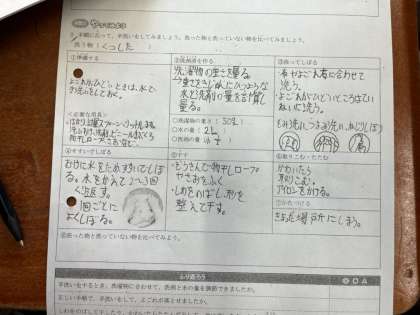 やってみよう
② 手順にそって、手洗いをしてみましょう。洗った物と洗っていない物を比べてみましょう。
洗う物（くつした）
①準備する
よごれがひどいときは、水で
下洗いをしておく。
＜必要な用具＞
②洗剤液を作る
洗濯物の重さを量る。
→重さをきじゅんにひつような
水と洗剤の量を計算し
量る。
○洗濯物の重さ（50g）
○水の量（2L）
○洗剤の量（
③洗ってしぼる
布やよごれ方に合わせて
洗う。
よごれがひどいところはてい
ねいに洗う。
④すすいでしぼる
むけに水をためすすいでしぼ
る。水をかえて2〜3回
くり返す。
1回ごとに
よくしぼる。
⑤干す
ぞうきんで物干しロープや
さおをふく
しわをのばし、形を
整えて干す。
⑥取りこむ・たたむ
かわいたら
取りこむ。
アイロンをかける。
⑦かたづける
きまった場所にしまう。
⑧洗った物と洗っていない物を比べてみよう。
ふり返ろう
◎ ○ △
手洗いをするとき、洗濯物に合わせて、洗剤と水の量を調節できましたか。
正しい手順で、手洗いをして、よごれが落とせましたか。